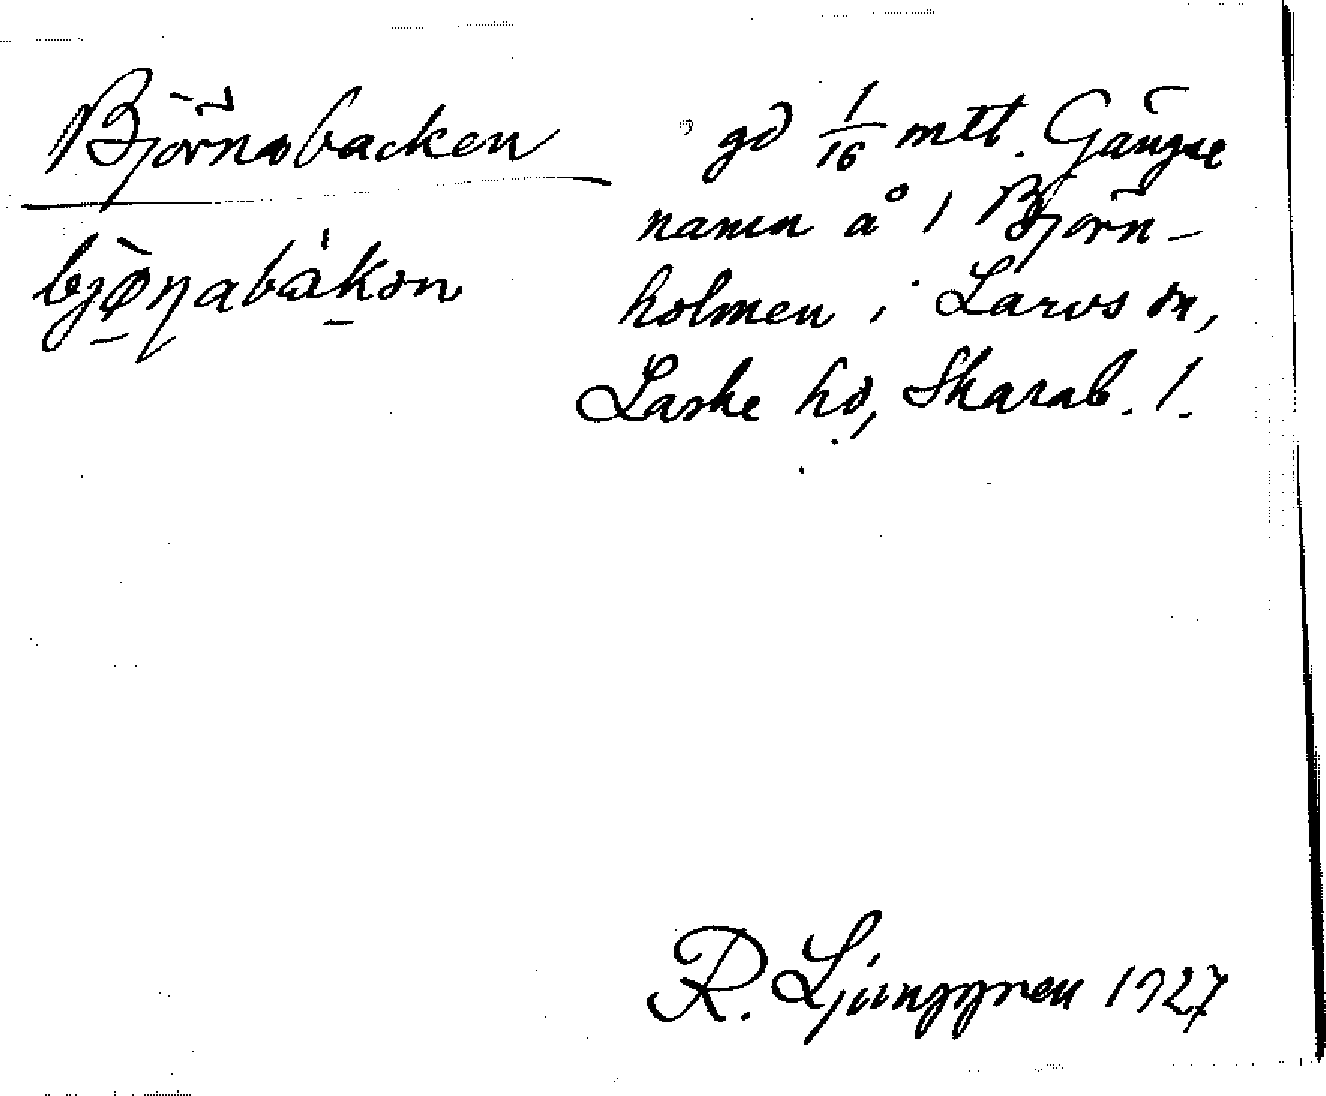 Björnabacken
bjø̀ṇabàkən
gd 1/16 mtl. Gängse
namn å 1 Björn-
holmen i Larvs sn,
Laske hd, Skarab. l.
R. Ljunggren 1927